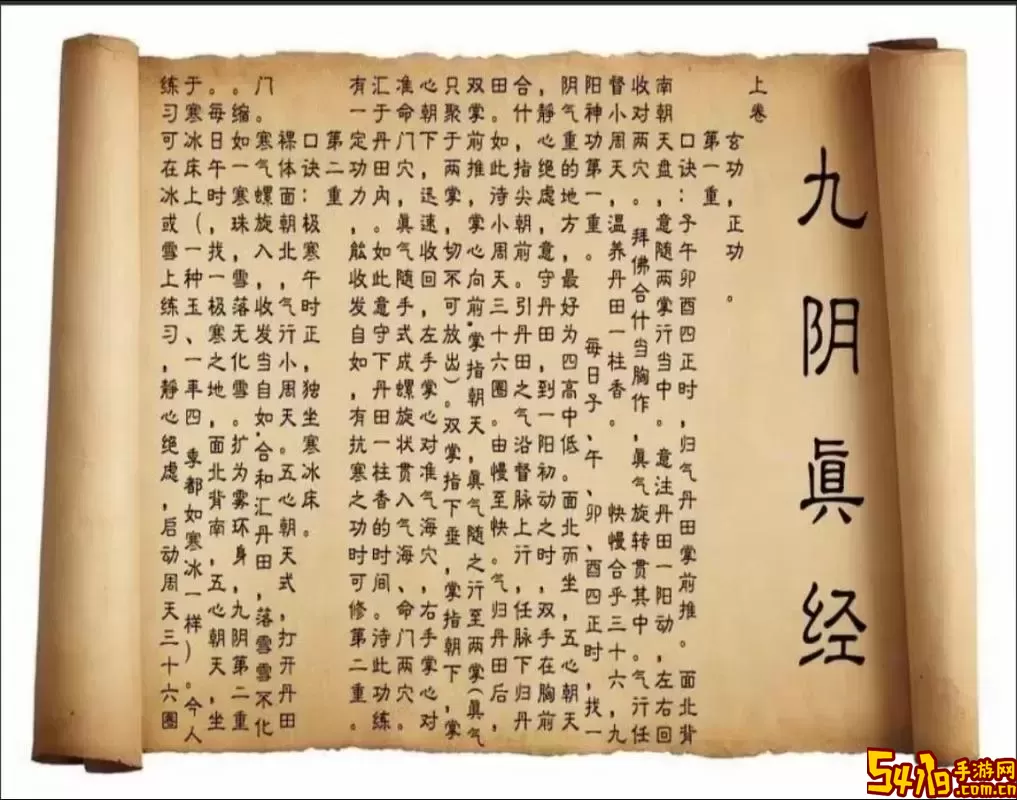 九阴眞经
上卷
玄功,正功。
第一重
口诀:子午卯酉四正时,归气丹田掌前推。面北背
南朝天盘,意随两掌行当中。意注丹田一阳动,左右回
收对两穴。拜佛合什当胸作,眞气旋转贯其中。气行任
督小周天,温养丹田一柱香。快慢合乎三十六,九
阳神功第一重。每日子、午、卯、酉四正时,找一
阴气重的地方,最好为四高中低。面北而坐,五心朝天
,静心绝虑,意守丹田,到一阳初动之时,双手在胸前
合什,指尖朝前。引丹田之气沿督脉上行,任脉下归丹
田。如此,待小周天三十六圈。由慢至快。气归丹田后,
双掌前推,掌心向前,掌指朝天,眞气随之行至两掌(眞气
只聚于两掌,切不可放出)。双掌指下垂,掌指朝下,掌
心朝下,迅速收回,左手掌心对准气海穴,右手掌心对
准命门穴,眞气随手式成螺旋状贯入气海、命门两穴。
汇于丹田内。如此意守下丹田一柱香的时间。待此功练
有一定功力,能收发自如,有抗寒之功时可修第二重。
第二重
口诀:极寒午时正,独坐寒冰床。
裸体面朝北,气行小周天。五心朝天式,打开丹田
门。寒气螺旋入,收发当自如,合和汇丹田,落雪雪不化
。缩如一寒珠,雪落无化雪。扩为雾环身,九阴第二重
。每日午时,找一极寒之地,面北背南,五心朝天,坐
于寒冰床上(一种玉、一年四季都如寒冰一样)。今人
练习可在冰或雪上练习,静心绝虑,启动周天三十六圈
5419手游网
.com.cn